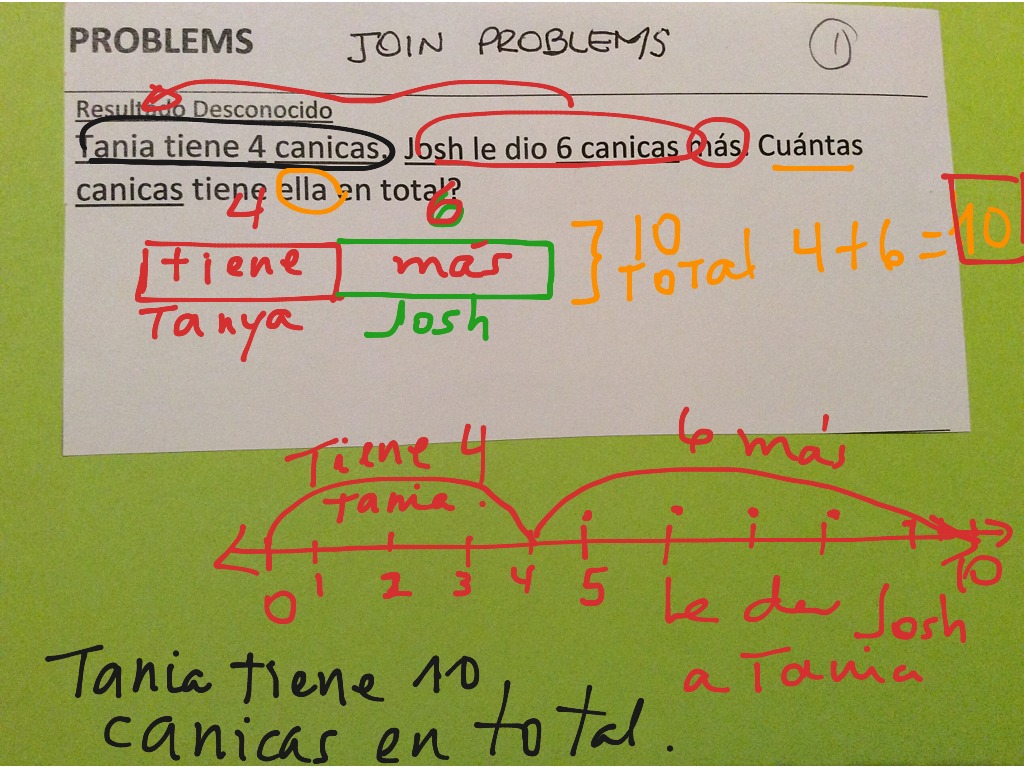 PROBLEMS JOIN PROBLEMS 1
Resultado Desconocido
Tania tiene 4 canicas. Josh le dio 6 canicas más. Cuántas
canicas tiene ella en total?
4 6
tiene más } 10 4+6=10
TOTAL
Tanya Josh
Tiene 4 6 más
tania.
0 1 2 3 4 5 10
Le da Josh
a Tania
Tania tiene 10
canicas en total.